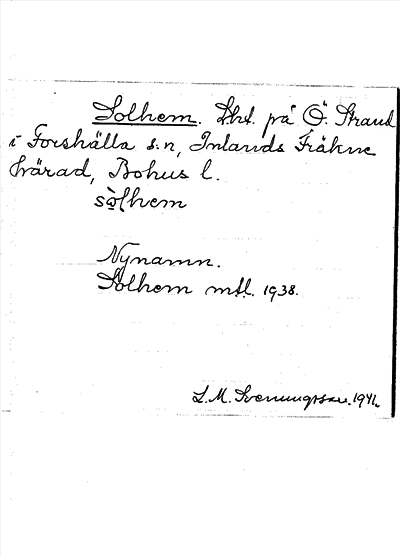 Solhem. Lht. på Ö. Strand
i Forshälla s:n, Inlands Fräkne
härad, Bohus l.
sòlhem
Nynamn.
Solhem mtl. 1938.
L.M. Svenungsson. 1941.